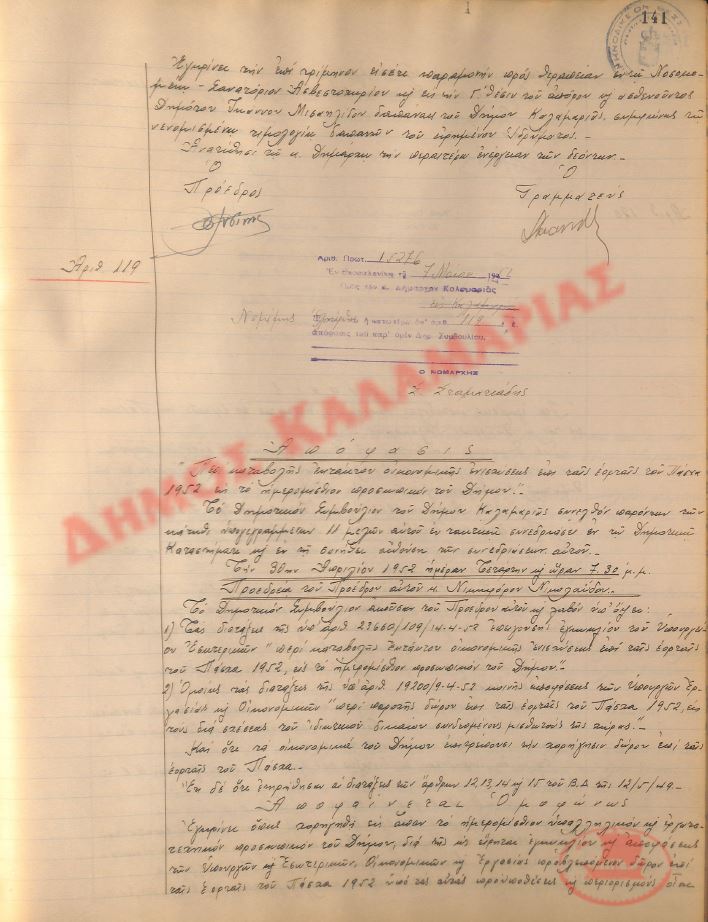 141
Ἐγκρίνει τὴν ἐπὶ τρίμηνον εἰσέτι παραμονὴν πρὸς θεραπείαν ἐν τῷ Νοσοκο-
μείῳ - Σανατόριον Ἀσβεστοχωρίου καὶ εἰς τὴν Γ' θέσιν τοῦ ἀπόρου καὶ ἀσθενοῦντος
Δημότου Ἰωάννου δαπάναις τοῦ Δήμου Καλαμαριᾶς, συμφώνως τῷ
νενομισμένῳ τιμολογίῳ δαπανῶν τοῦ εἰρημένου Ἱδρύματος.-
Ἀνατίθησι τῷ κ. Δημάρχῳ τὴν περαιτέρω ἐνέργειαν τῶν δεόντων.-
Ὁ Ὁ
Πρόεδρος Γραμματεὺς
Ἀριθ. 119
Αριθ. Πρωτ. 15276
Ἐν Θεσσαλονίκῃ τῇ 7 Μαΐου 1952
Πρὸς τὸν κ. Δήμαρχον Καλαμαριᾶς
εἰς Καλαμαριὰ
Νομίμως ἐλήφθη ἡ κατωτέρω ὑπ' ἀριθ. 119 ἔ. ἔ.
ἀπόφασις τοῦ παρ' ὑμῖν Δημ. Συμβουλίου.
Ο ΝΟΜΑΡΧΗΣ
Σ. Σταματιάδης
ΔΗΜΟΣ ΚΑΛΑΜΑΡΙΑΣ
Ἀπόφασις
"Περὶ καταβολῆς ἐκτάκτου οἰκονομικῆς ἐνισχύσεως ἐπὶ ταῖς ἑορταῖς τοῦ Πάσχα
1952 εἰς τὸ ἡμερομίσθιον προσωπικὸν τοῦ Δήμου".-
Τὸ Δημοτικὸν Συμβούλιον τοῦ Δήμου Καλαμαριᾶς συνελθὸν παρόντων τῶν
κάτωθι ὑπογεγραμμένων 11 μελῶν αὐτοῦ ἐν τακτικῇ συνεδριάσει ἐν τῷ Δημοτικῷ
Καταστήματι καὶ ἐν τῇ συνήθει αἰθούσῃ τῶν συνεδριάσεων αὐτοῦ.-
Τὴν 30ην Ἀπριλίου 1952 ἡμέραν Τετάρτην καὶ ὥραν 7.30 μ.μ.
Προεδρείᾳ τοῦ Προέδρου αὐτοῦ κ. Νικηφόρου Νικολαΐδου.-
Τὸ Δημοτικὸν Συμβούλιον ἀκοῦσαν τοῦ Προέδρου αὐτοῦ καὶ λαβὸν ὑπ' ὄψει:
1) Τὰς διατάξεις τῆς ὑπ' ἀριθ. 23660/109/14-4-52 ἐπειγούσης ἐγκυκλίου τοῦ Ὑπουργείου
Ἐσωτερικῶν "περὶ καταβολῆς ἐκτάκτου οἰκονομικῆς ἐνισχύσεως ἐπὶ ταῖς ἑορταῖς
τοῦ Πάσχα 1952, εἰς τὸ ἡμερομίσθιον προσωπικὸν τοῦ Δήμου".-
2) Ὁμοίως τὰς διατάξεις τῆς ὑπ' ἀριθ. 19200/9-4-52 κοινῆς ἀποφάσεως τῶν Ὑπουργῶν Ἐρ-
γασίας καὶ Οἰκονομικῶν "περὶ παροχῆς δώρου ἐπὶ ταῖς ἑορταῖς τοῦ Πάσχα 1952, εἰς
τοὺς διὰ σχέσεως τοῦ ἰδιωτικοῦ δικαίου συνδεομένους μισθωτοὺς τῆς χώρας".-
Καὶ ὅτι τὰ οἰκονομικὰ τοῦ Δήμου ἐπιτρέπουσι τὴν χορήγησιν δώρου ἐπὶ ταῖς
ἑορταῖς τοῦ Πάσχα.-
Ἔτι δὲ ὅτι ἐτηρήθησαν αἱ διατάξεις τῶν ἄρθρων 12, 13, 14 καὶ 15 τοῦ Β.Δ τῆς 12/5/49.-
Ἀποφαίνεται Ὁμοφώνως
Ἐγκρίνει ὅπως χορηγηθῇ εἰς ἅπαν τὸ ἡμερομίσθιον ὑπαλληλικὸν καὶ ἐργατο-
τεχνικὸν προσωπικὸν τοῦ Δήμου, διὰ τῆς ὡς εἴρηται ἐγκυκλίου καὶ ἀποφάσεως
τῶν Ὑπουργῶν καὶ Ἐσωτερικῶν, Οἰκονομικῶν καὶ Ἐργασίας προβλεπόμενον δῶρον ἐπὶ
ταῖς ἑορταῖς τοῦ Πάσχα 1952 ὑπὸ τὰς αὐτὰς προϋποθέσεις καὶ περιορισμοὺς